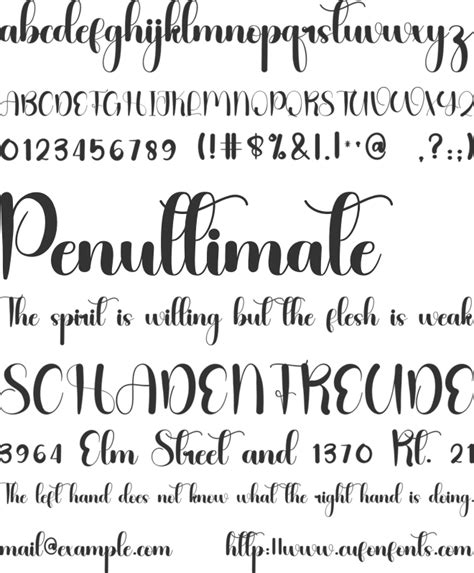 abcdefghijklmnopqrstuvwxyz
ABCDEFGHIJKLMNOPQRSTUVWXYZ
0123456789 (!#$%&!.,@ ,?:;)
Penultimate
The spirit is willing but the flesh is weak
SCHADENFREUDE
3964 Elm Street and 1370 Rt. 21
The left hand does not know what the right hand is doing.
mail@example.com http://www.cufonfonts.com